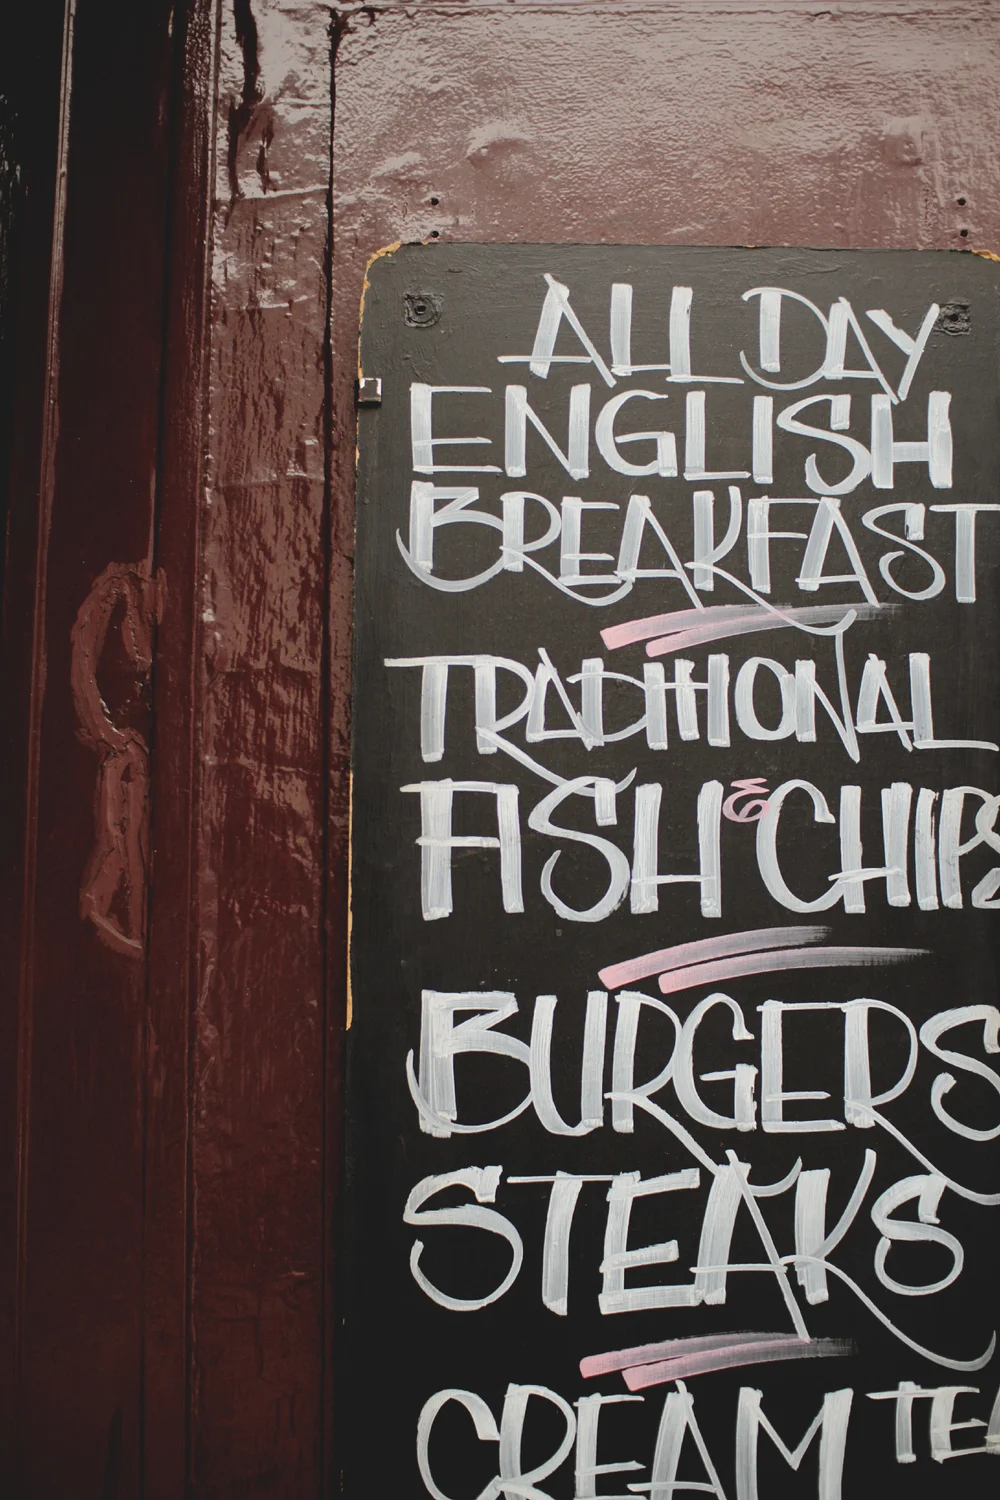 ALL DAY
ENGLISH
BREAKFAST
TRADITIONAL
FISH & CHIPS
BURGERS
STEAKS
CREAM TEA